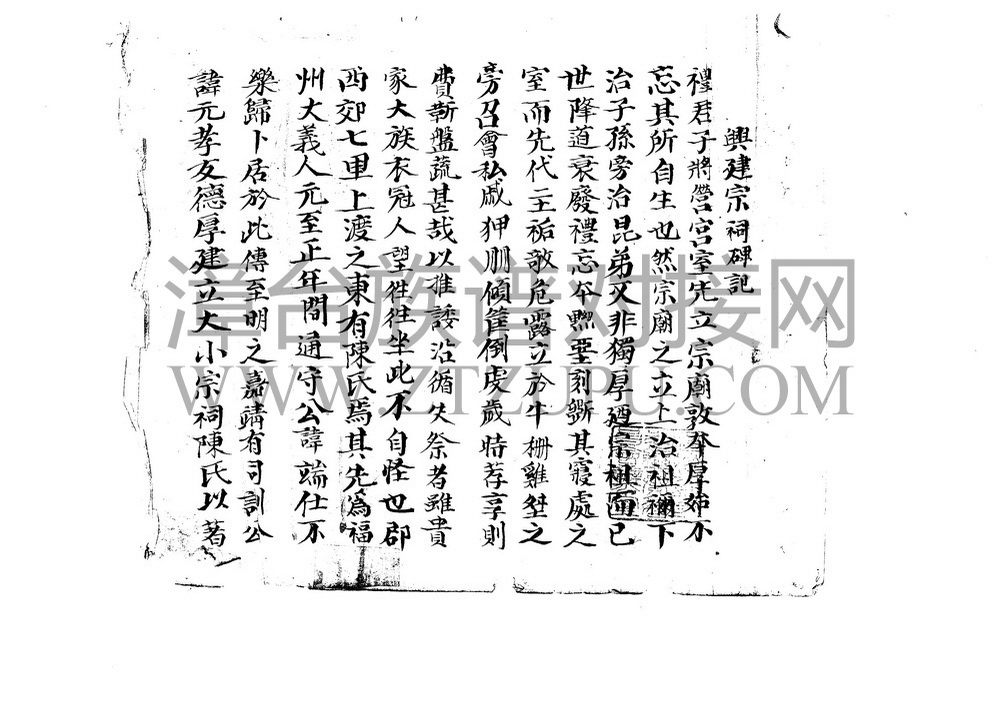 興建宗祠碑記
禮君子將營宮室先立宗廟敦夲厚始不
忘其所自生也然宗廟之立上治祖禰下
治子孫旁治昆弟又非獨厚廼宗祖而已
世降道衰廢禮忘夲黝堊刻鏤其寢處之
室而先代主祏攲危露立於牛柵雞塒之
旁召會私戚狎朋傾筐倒庋歲時荐享則
費靳盤蔬甚哉以推諉沿循失祭者雖貴
家大族衣冠人望徃徃坐此不自怪也郡
西郊七里上渡之東有陳氏焉其先爲福
州大義人元至正年間通守公諱端仕不
樂歸卜居於此傳至明之嘉靖有司訓公
諱元孝友德厚建立大小宗祠陳氏以著
漳台族谱对接网
WWW.ZTZUPU.COM